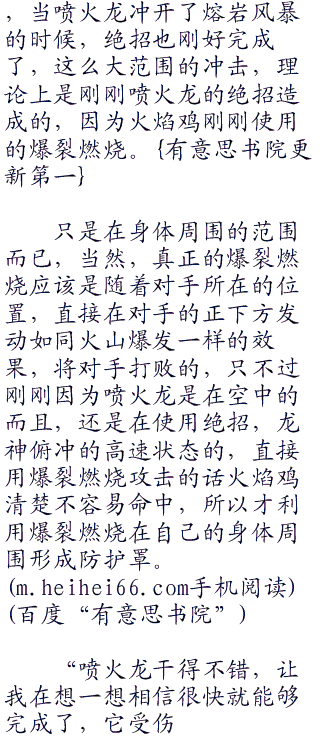 ，当喷火龙冲开了熔岩风暴
的时候，绝招也刚好完成
了，这么大范围的冲击，理
论上是刚刚喷火龙的绝招造
成的，因为火焰鸡刚刚使用
的爆裂燃烧。{有意思书院更
新第一}
只是在身体周围的范围
而已，当然，真正的爆裂燃
烧应该是随着对手所在的位
置，直接在对手的正下方发
动如同火山爆发一样的效
果，将对手打败的，只不过
刚刚因为喷火龙是在空中的
而且，还是在使用绝招，龙
神俯冲的高速状态的，直接
用爆裂燃烧攻击的话火焰鸡
清楚不容易命中，所以才利
用爆裂燃烧在自己的身体周
围形成防护罩。
(m.heihei66.com手机阅读)
(百度“有意思书院”)
“喷火龙干得不错，让
我在想一想相信很快就能够
完成了，它受伤